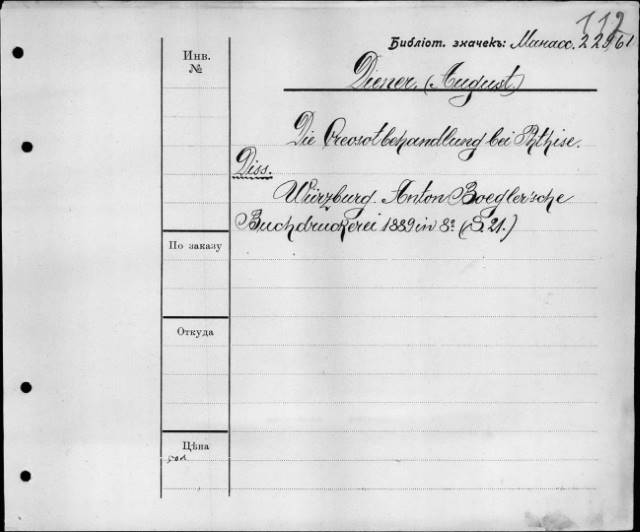 112
Библіот. значекъ: Манасс. 22961
Инв.
№
Diener. (August.)
Die Creosotbehandlung bei Phthise.
Diss.
Würzburg. Anton Boegler'sche
Buchdruckerei 1889 in 8º (S. 21.)
По заказу
Откуда
Цѣна